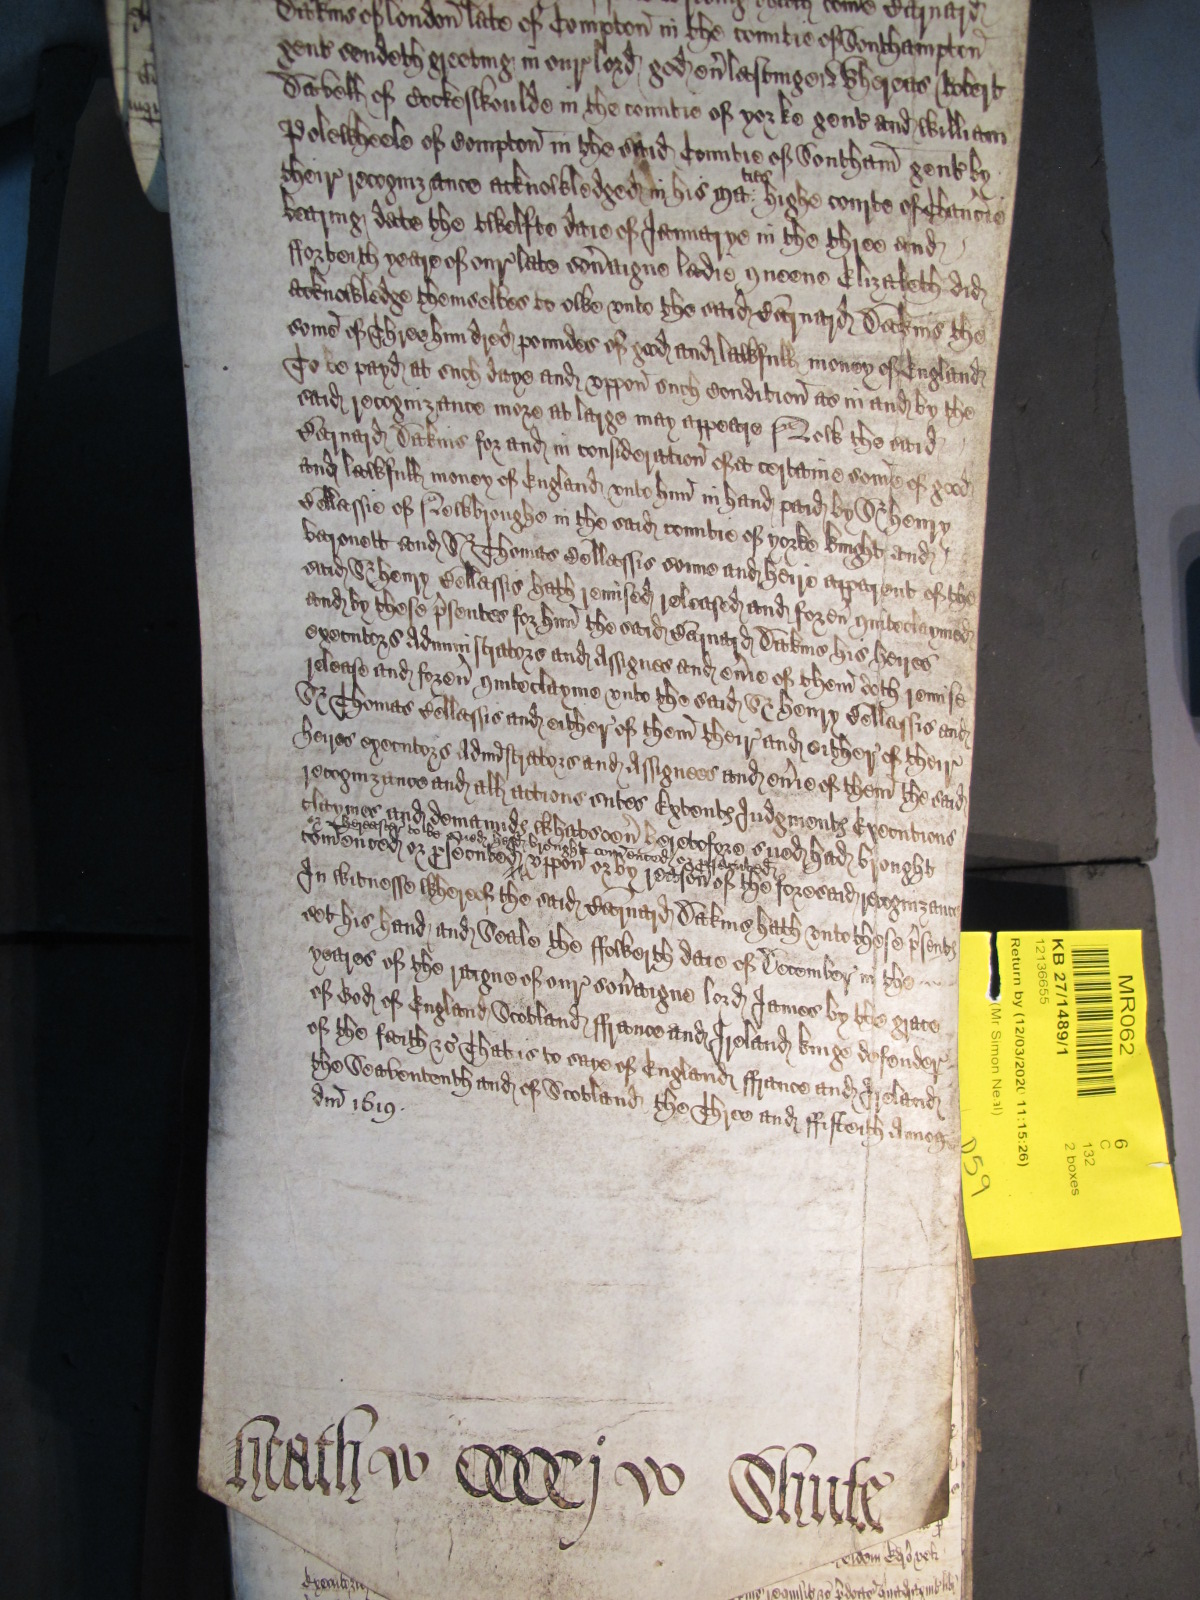 shall come Barnard
Dakins of london late of Compton in the countie of Southampton
gent sendeth greeting in our lord god eṽlastinge Whereas Robert
Dabell of Cockeskoulde in the countie of yorke gent and William
Polewheele of Compton in the said Countie of Southam̃ gent by
their recognizance acknowledged in his Ma:ties highe courte of Chaũcie
bearing date the twelfte daie of Januarye in the three and
ffortieth yeare of our late sov̄aigne ladie queene Elizabeth did
acknowledge themselves to owe unto the said Barnard Dakins the
some of Three hundred poundes of good and lawfull money of England
To be payd at such daye and uppon such condition as in and by the
said recognizance more at large may appeare Now the said
Barnard Dakins for and in consideration of a certaine some of good
and lawfull money of England unto him in hand paid by Sr henry
Bellassis of Newbroughe in the said countie of yorke knight and
baronett and Sr Thomas Bellassis sonne and heire apparent of the
said Sr henry Bellassis hath remised released and for eṽ quiteclaymed
and by these p̃sentes for him the said Barnard Dakins his heires
executors Administrators and Assignes and eṽie of them doth remise
release and for eṽ quiteclayme unto the said Sr henry Bellassis and
Sr Thomas Bellassis and either of them their and either of their
heires executors Adm̃istrators and Assignees and eṽie of them the said
recognizance and all actions suites Extents Judgments Executions
claymes and demaunds whatsoeṽ heretofore sued had brought
or hereafter to be sued had brought com̃enced or p̱secuted
com̃enced or p̱secuted uppon or by reason of the foresaid recognizance
In witnesse whereof the said Barnard Dakins hath unto these p̃sents
set his hand and Seale the ffowerth daie of December in the
yeares of the raigne of our sov̄aigne lord James by the grace
of God of England Scotland ffrance and Ireland kinge defender
of the faith &c That is to saye of England ffrance and Ireland
the Seavententh and of Scotland the Three and ffiftieth Annoq
dm̃ 1619.
heath w CCCCj w Shute
MR062
KB 27/1489/1
12136655
Return by (12/03/2020 11:15:26)
(Mr Simon Neal)
6
C
132
2 boxes
D59